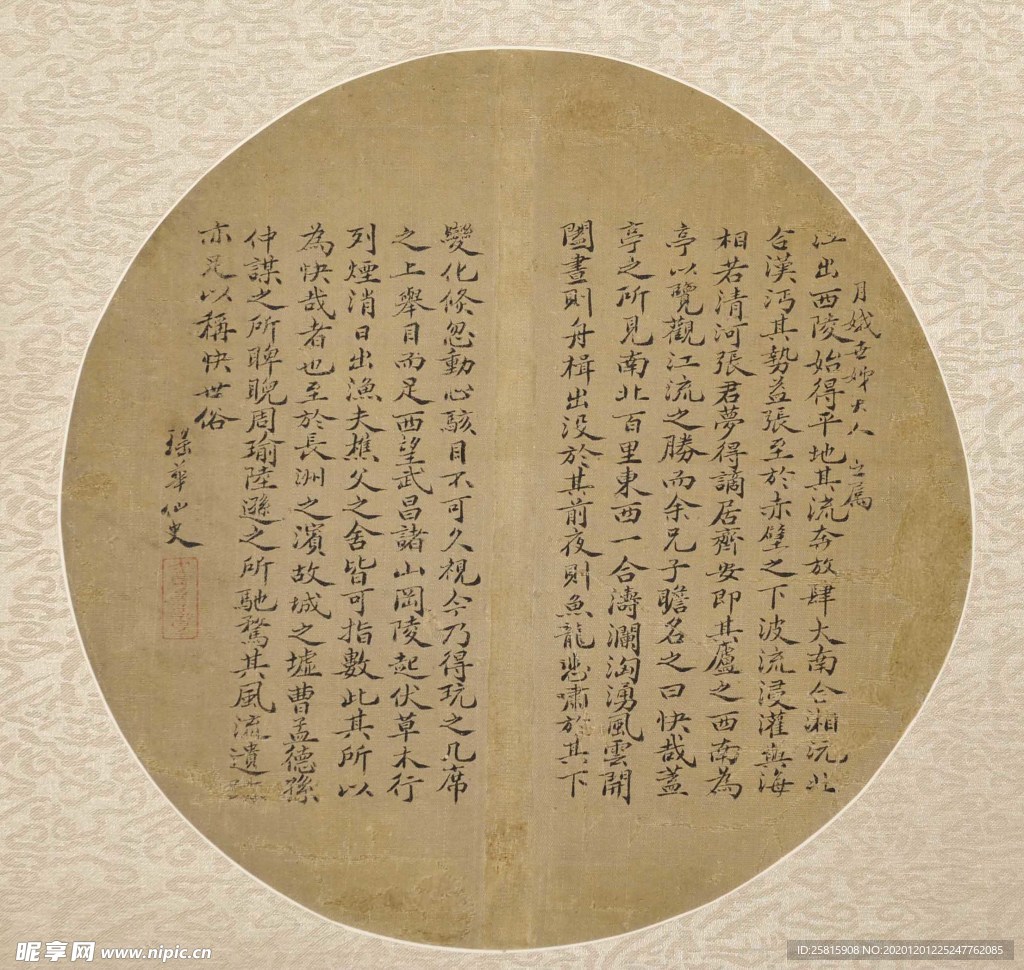 月娥世姊大人 之属
江出西陵始得平地其流奔放肆大南合湘沅北
合漢沔其勢益張至於赤壁之下波流浸灌與海
相若清河張君夢得謫居齊安即其廬之西南為
亭以覽觀江流之勝而余兄子瞻名之曰快哉蓋
亭之所見南北百里東西一合濤瀾洶湧風雲開
闔晝則舟楫出没於其前夜則魚龍悲嘯於其下
變化倏忽動心駭目不可久視今乃得玩之几席
之上舉目而足西望武昌諸山岡陵起伏草木行
列煙消日出漁夫樵父之舍皆可指數此其所以
為快哉者也至於長洲之濱故城之墟曹孟德孫
仲謀之所睥睨周瑜陸遜之所馳騖其風流遺跡
亦足以稱快世俗
華仙史
昵享网 www.nipic.cn
ID:25815908 NO:20201201225247762085